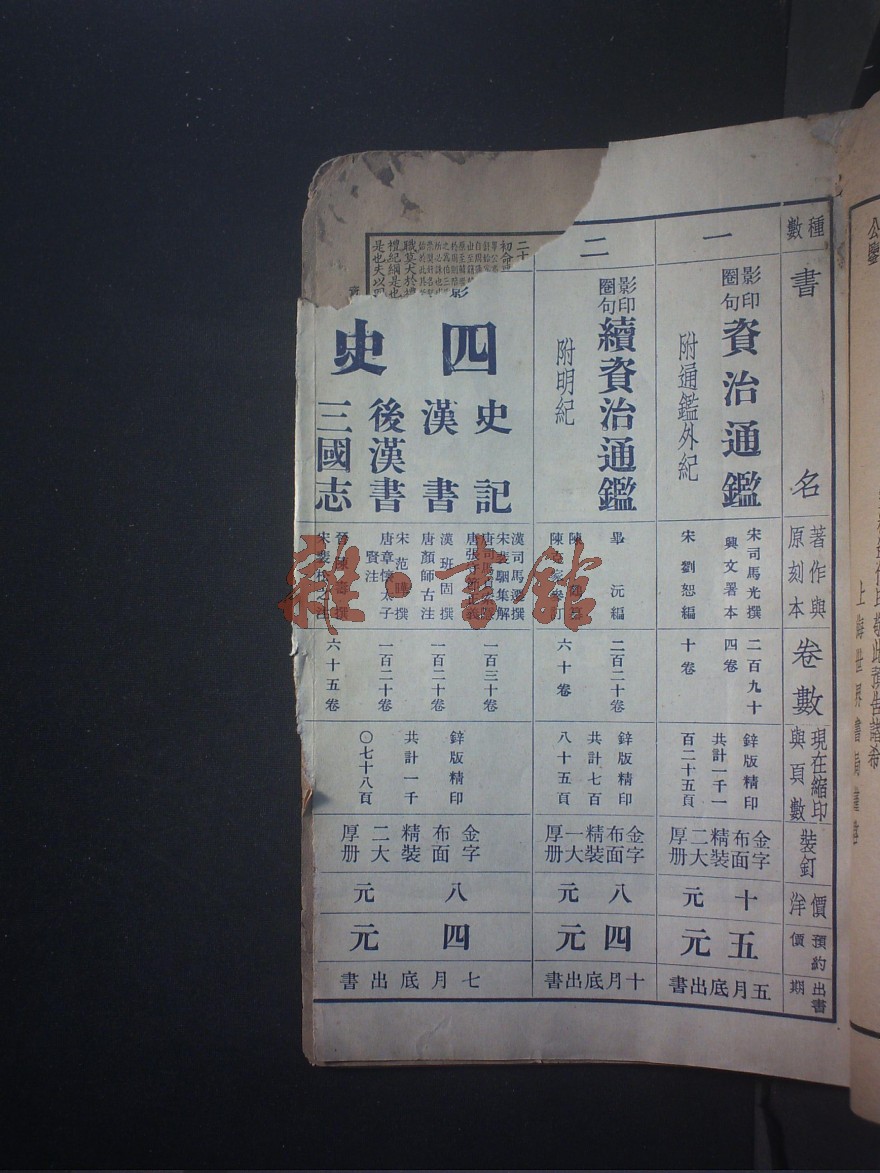 種數
書名
著作與
原刻本
卷數
現在縮印
與頁數
裝釘
價洋
預約價
出書期
一
影印
圈句
資治通鑑
附通鑑外紀
宋司馬光撰
興文署本
宋劉恕編
二百九十
四卷
十卷
鋅版精印
共計一千一
百二十五頁
金字
布面
精裝
二大
厚册
十元
五元
五月底出書
二
影印
圈句
續資治通鑑
附明紀
畢沅編
二百二十卷
六十卷
鋅版精印
共計七百
八十五頁
金字
布面
精裝
一大
厚册
八元
四元
十月底出書
四史
史記
漢書
後漢書
三國志
漢司馬遷撰
宋裴駰集解
漢班固撰
唐顏師古注
宋范曄撰
唐章懷太子
賢注
晉陳壽撰
宋裴松之注
一百三十卷
一百二十卷
一百二十卷
六十五卷
鋅版精印
共計一千
〇七十八頁
金字
布面
精裝
二大
厚册
八元
四元
七月底出書
二十
初命
職莫大於禮
禮紀綱是也
是也夫以四
公鑒
上海世界書局謹啓
雜·書館